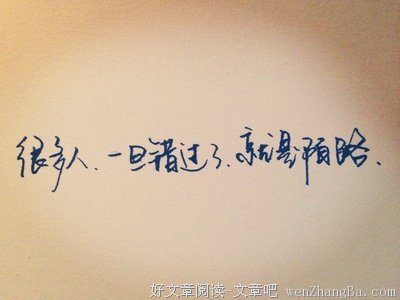 很多人、一旦错过了、就是陌路、
好文章阅读-文章吧 wenZhangBa.com